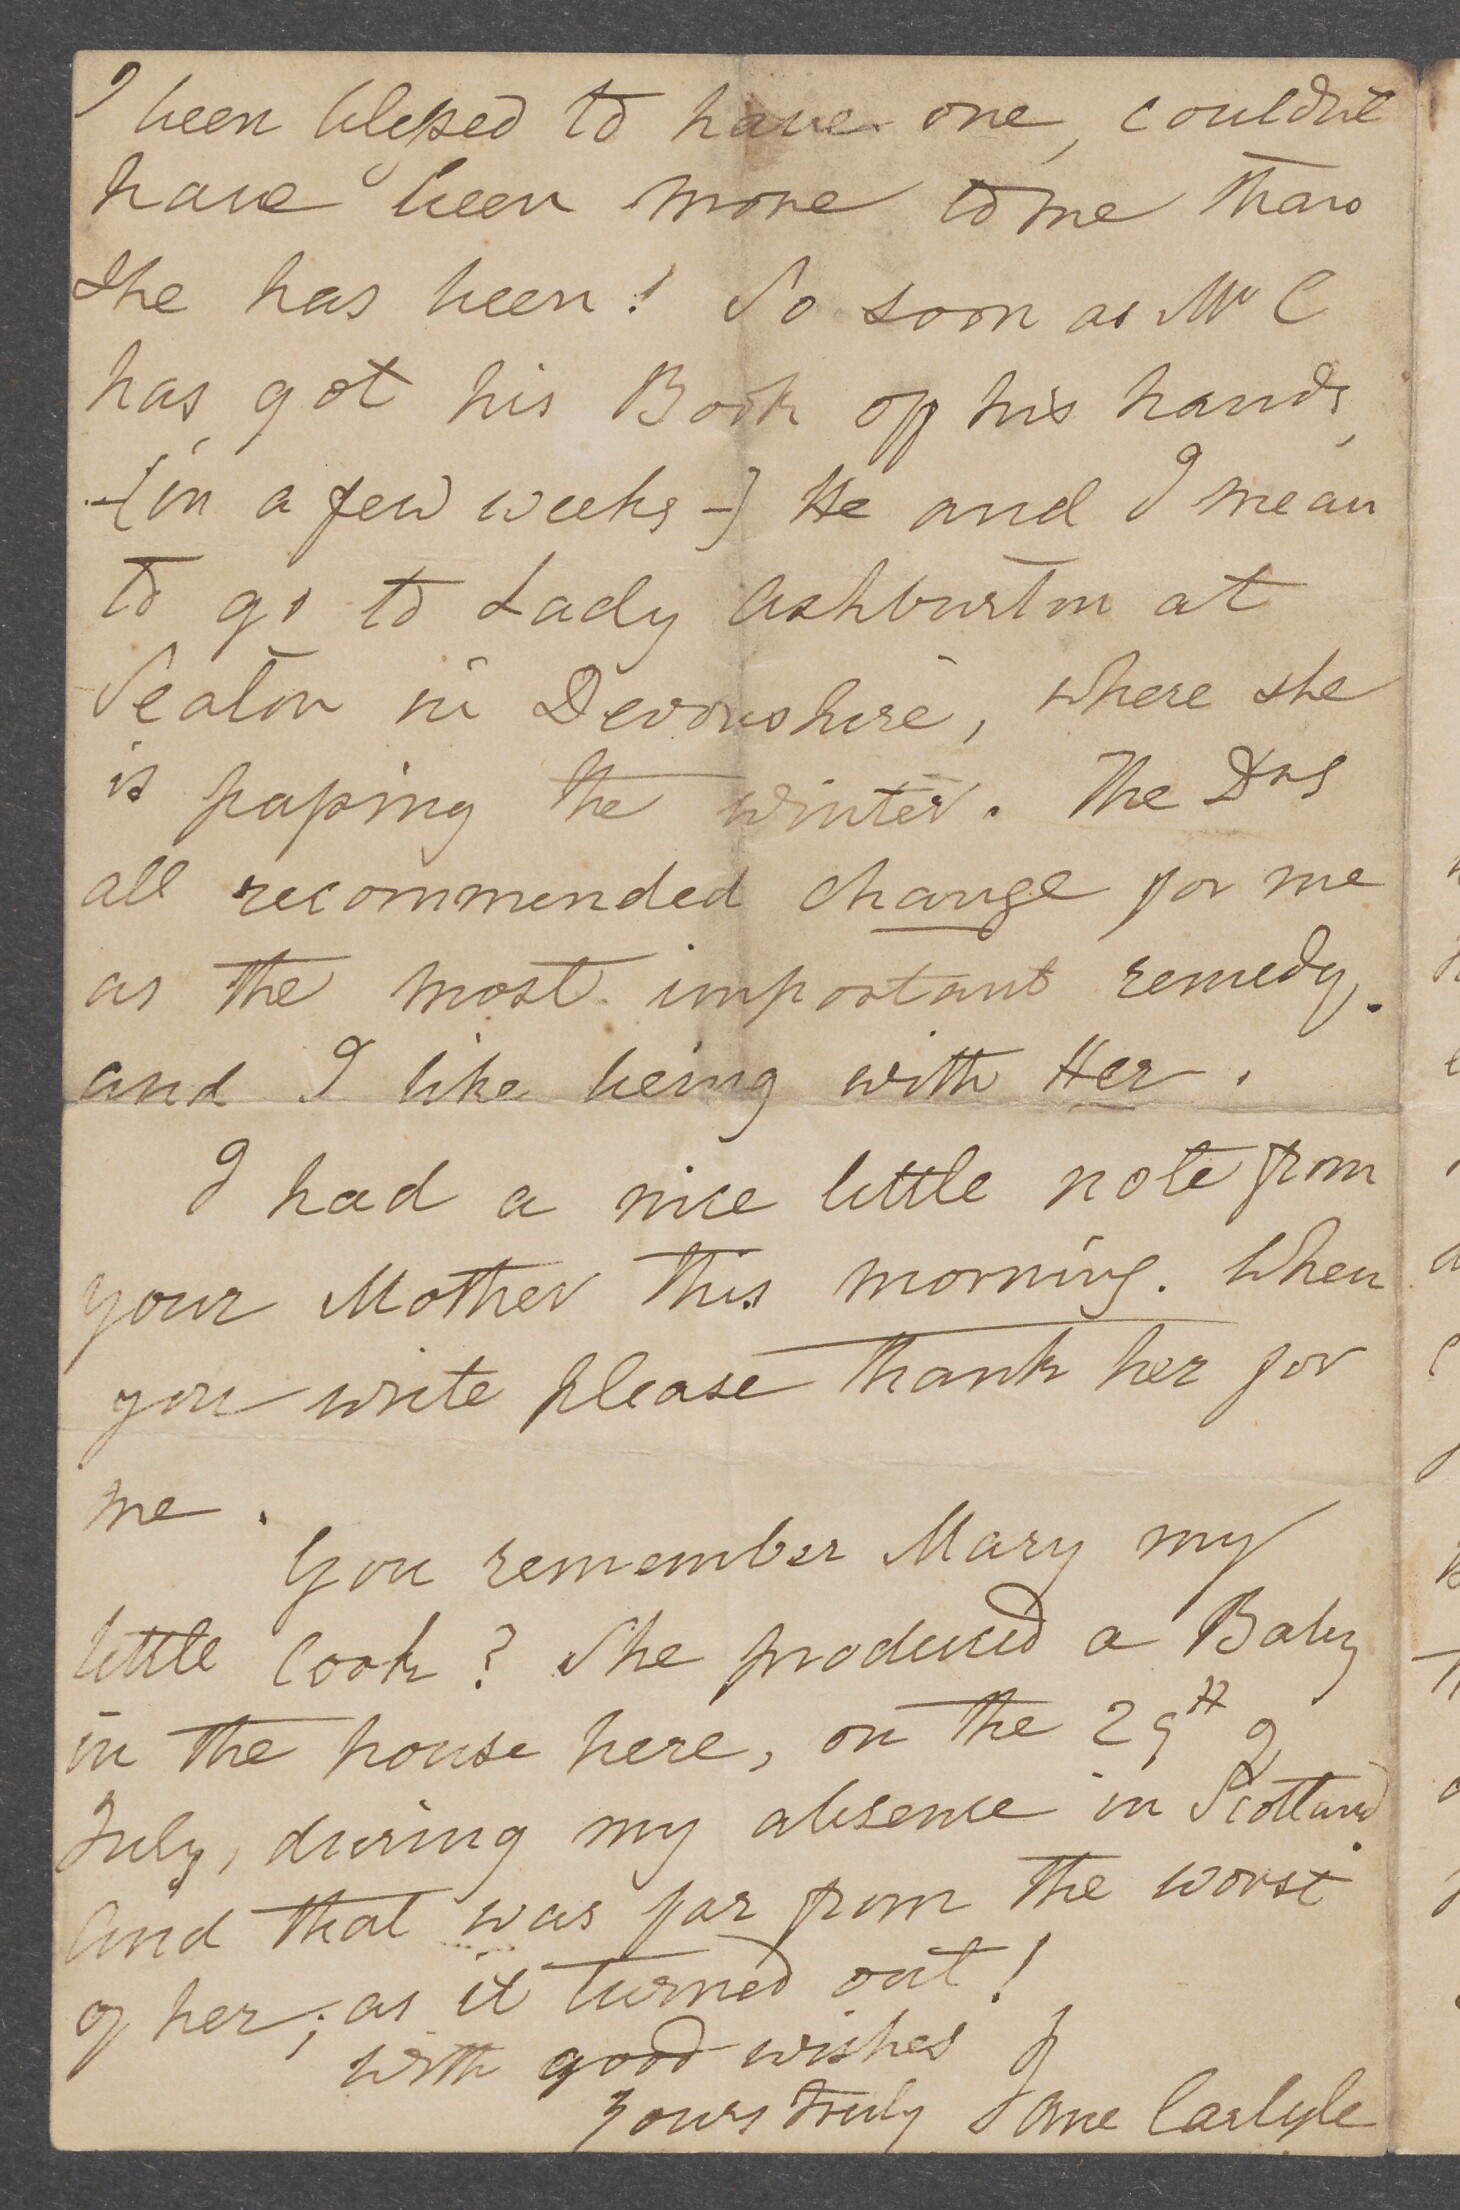 I been blessed to have one, couldn't
have been more to me than
she has been! So soon as Mr C
has got his Book off his hands,
-(in a few weeks-) He and I mean
to go to Lady Ashburton at
Seaton in Devonshire, where she
is passing the winter. The Drs
all recommended change for me
as the most important remedy.
and I like being with Her.
I had a nice little note from
your Mother this morning. When
you write please thank her for
me.
You remember Mary my
little cook? She produced a Baby
in the house here, on the 29th of
July, during my absence in Scotland.
And that was far from the worst
of her; as it turned out!
with good wishes
yours truly Jane Carlyle